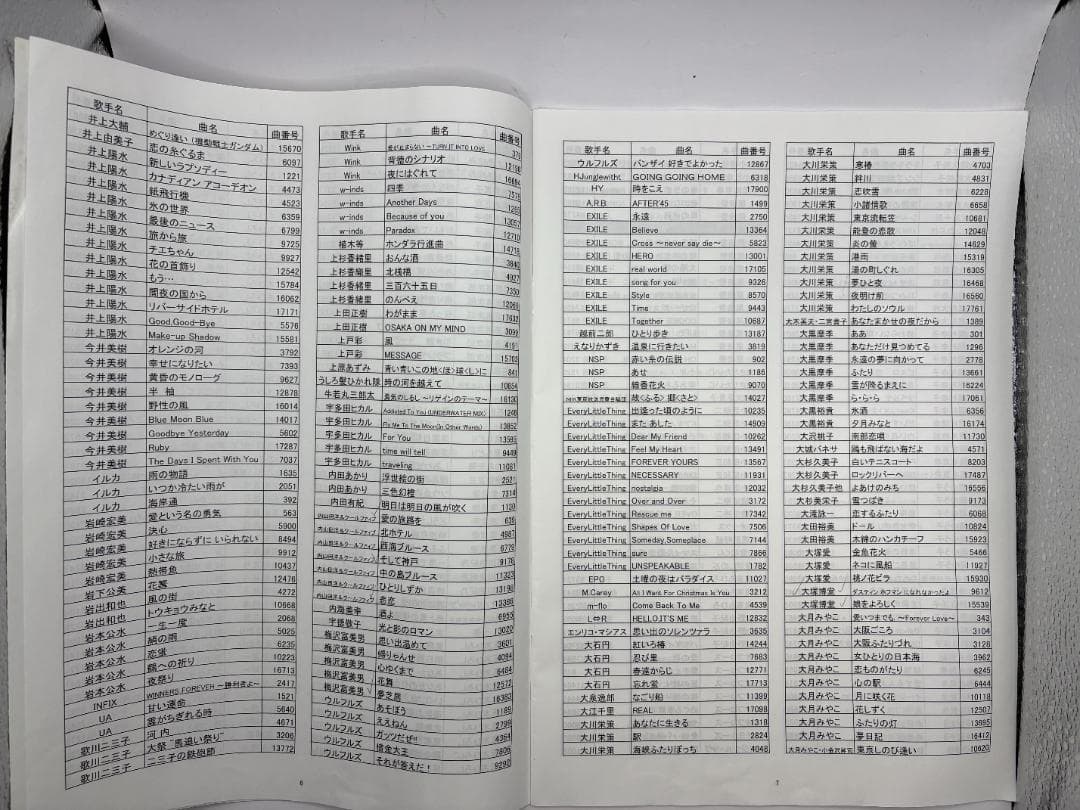 歌手名 曲名 曲番号
井上大輔 めぐり逢い（機動戦士ガンダム） 15670
井上由美子 恋の糸ぐるま 6097
井上陽水 新しいラプソディー 1221
井上陽水 カナディアン アコーデオン 4473
井上陽水 紙飛行機 4523
井上陽水 氷の世界 6359
井上陽水 最後のニュース 6799
井上陽水 旅から旅 9725
井上陽水 チエちゃん 9927
井上陽水 花の首飾り 12542
井上陽水 もう… 15784
井上陽水 闇夜の国から 16062
井上陽水 リバーサイドホテル 17171
井上陽水 Good,Good-Bye 5576
井上陽水 Make-up Shadow 15581
今井美樹 オレンジの河 3792
今井美樹 幸せになりたい 7393
今井美樹 黄昏のモノローグ 9627
今井美樹 半袖 12878
今井美樹 野性の風 16014
今井美樹 Blue Moon Blue 14017
今井美樹 Goodbye Yesterday 5602
今井美樹 Ruby 17287
今井美樹 The Days I Spent With You 7037
イルカ 雨の物語 1635
イルカ いつか冷たい雨が 2051
イルカ 海岸通 392
岩崎宏美 愛という名の勇気 563
岩崎宏美 決心 5900
岩崎宏美 好きにならずに いられない 8494
岩崎宏美 小さな旅 9912
岩崎宏美 熱帯魚 10437
岩下公美 花篝 12476
岩出和也 風の街 4272
岩出和也 トウキョウみなと 10668
岩本公水 一生一度 2068
岩本公水 鞆の雨 5025
岩本公水 恋螢 6235
岩本公水 鶴への祈り 10223
岩本公水 夜祭り 16713
INFIX WINNERS FOREVER ～勝利者よ～ 2417
UA 甘い運命 1521
UA 雲がちぎれる時 5640
歌川二三子 河内 4671
歌川二三子 大祭“馬追い祭り” 3206
歌川二三子 二三子の鉄砲節 13772
歌手名 曲名 曲番号
Wink 愛が止まらない ～TURN IT INTO LOVE
Wink 背徳のシナリオ
Wink 夜にはぐれて
w-inds 四季
w-inds Another Days
w-inds Because of you
w-inds Paradox 12710
植木等 ホンダラ行進曲 14718
上杉香緒里 おんな酒 3840
上杉香緒里 北桟橋 4927
上杉香緒里 三百六十五日 7350
上杉香緒里 のんべえ
上田正樹 わがまま 17632
上田正樹 OSAKA ON MY MIND 3099
上戸彩 風 4191
上戸彩 MESSAGE 15703
上原あずみ 青い青いこの地＜ほ＞球＜し＞に 841
うしろ髪ひかれ隊 時の河を越えて 10654
牛若丸三郎太 勇気のしるし ～リゲインのテーマ～ 16130
宇多田ヒカル Addicted To You (UNDERWATER MIX) 1246
宇多田ヒカル Fly Me To The Moon(In Other Words) 13852
宇多田ヒカル For You 13595
宇多田ヒカル time will tell 9449
宇多田ヒカル traveling 11081
内田あかり 浮世絵の街 2521
内田あかり 三色幻燈 7314
内田有紀 明日は明日の風が吹く
内山田洋&クールファイブ 愛の旅路を
内山田洋&クールファイブ 北ホテル 4987
内山田洋&クールファイブ 西海ブルース 6776
内山田洋&クールファイブ そして神戸 9176
内山田洋&クールファイブ 中の島ブルース 11323
内山田洋&クールファイブ ひとりしずか 13190
内山田洋&クールファイブ 恋 12386
内海美幸 酒よ 6953
宇徳敬子 光と影のロマン 13020
梅沢富美男 思い出温めて 3601
梅沢富美男 帰りゃんせ 4094
梅沢富美男 心ゆくまで 6464
梅沢富美男 花舞 12572
梅沢富美男 夢芝居 16383
ウルフルズ あそぼう 1189
ウルフルズ ええねん 2799
ウルフルズ ガッツだぜ!! 4364
ウルフルズ 借金大王 7806
ウルフルズ それが答えだ！ 9292
6
歌手名 曲名 曲番号
ウルフルズ バンザイ 好きでよかった 12867
HJunglewitht GOING GOING HOME 6318
HY 時をこえ 17900
A.R.B. AFTER'45 1499
EXILE 永遠 2750
EXILE Believe 13364
EXILE Cross ～never say die～ 5823
EXILE HERO 13001
EXILE real world 17105
EXILE song for you 9326
EXILE Style 8570
EXILE Time 9443
EXILE Together 10687
越前二郎 ひとり歩き 13187
えなりかずき 温泉に行きたい 3819
NSP 赤い糸の伝説 902
NSP あせ 1186
NSP 線香花火 9070
NHK東京放送児童合唱団 故＜ふる＞郷＜さと＞ 14027
EveryLittleThing 出逢った頃のように 10235
EveryLittleThing また あした 14909
EveryLittleThing Dear My Friend 10262
EveryLittleThing Feel My Heart 13491
EveryLittleThing FOREVER YOURS 13567
EveryLittleThing NECESSARY 11931
EveryLittleThing nostalgia 12032
EveryLittleThing Over and Over 3172
EveryLittleThing Rescue me 17342
EveryLittleThing Shapes Of Love 7506
EveryLittleThing Someday,Someplace 7144
EveryLittleThing sure 7866
EveryLittleThing UNSPEAKABLE 1782
EPO 土曜の夜はパラダイス 11027
M.Carey All I Want For Christmas Is You 3212
m-flo Come Back To Me 4539
L⇔R HELLO,IT'S ME 12832
エンリコ・マシアス 思い出のソレンツァラ 3635
大石円 紅いろ椿 14244
大石円 忍び里 7683
大石円 春遠からじ 12771
大石円 忘れ宮 17713
大泉逸郎 なごり船 11399
大江千里 REAL 17098
大川栄策 あなたに生きる 1318
大川栄策 駅 2824
大川栄策 海峡ふたりぼっち 4048
歌手名 曲名 曲番号
大川栄策 寒椿 4703
大川栄策 絆川 4831
大川栄策 恋吹雪 6228
大川栄策 小諸情歌 6658
大川栄策 東京流転笠 10681
大川栄策 能登の恋歌 12048
大川栄策 炎の螢 14829
大川栄策 港雨 15319
大川栄策 湯の町しぐれ 16305
大川栄策 夢ひと夜 16468
大川栄策 夜明け前 16560
大川栄策 わたしのソウル 17761
大木英夫・二宮善子 あなたまかせの夜だから 1389
大黒摩季 ああ 301
大黒摩季 あなただけ見つめてる 1296
大黒摩季 永遠の夢に向かって 2778
大黒摩季 ふたり 13661
大黒摩季 雪が降るまえに 16224
大黒摩季 ら・ら・ら 17061
大黒裕貴 氷酒 6356
大黒裕貴 夕月みなと 16174
大沢桃子 南部恋唄 11730
大城バネサ 鴎も飛ばない海だよ 4571
大杉久美子 白いテニスコート 8203
大杉久美子 ロックリバーへ 17487
大杉久美子他 よあけのみち 16556
大杉美栄子 雪つばき 9173
大滝詠一 恋するふたり 6068
太田裕美 ドール 10824
太田裕美 木綿のハンカチーフ 15923
大塚愛 金魚花火 5466
大塚愛 ネコに風船 11927
大塚愛 桃ノ花ビラ 15930
大塚博堂 ダスティン ホフマン になれなかったよ 9612
大塚博堂 娘をよろしく 15539
大月みやこ 愛いつまでも ～Forever Love～ 343
大月みやこ 大阪ごころ 3104
大月みやこ 大阪ふたりづれ 3128
大月みやこ 女ひとりの日本海 3962
大月みやこ 恋ものがたり 6245
大月みやこ 心の駅 6444
大月みやこ 月に咲く花 10118
大月みやこ 花しずく 12507
大月みやこ ふたりの灯 13695
大月みやこ 夢日記 16412
大月みやこ・小金沢昇司 東京しのび逢い 10620
7